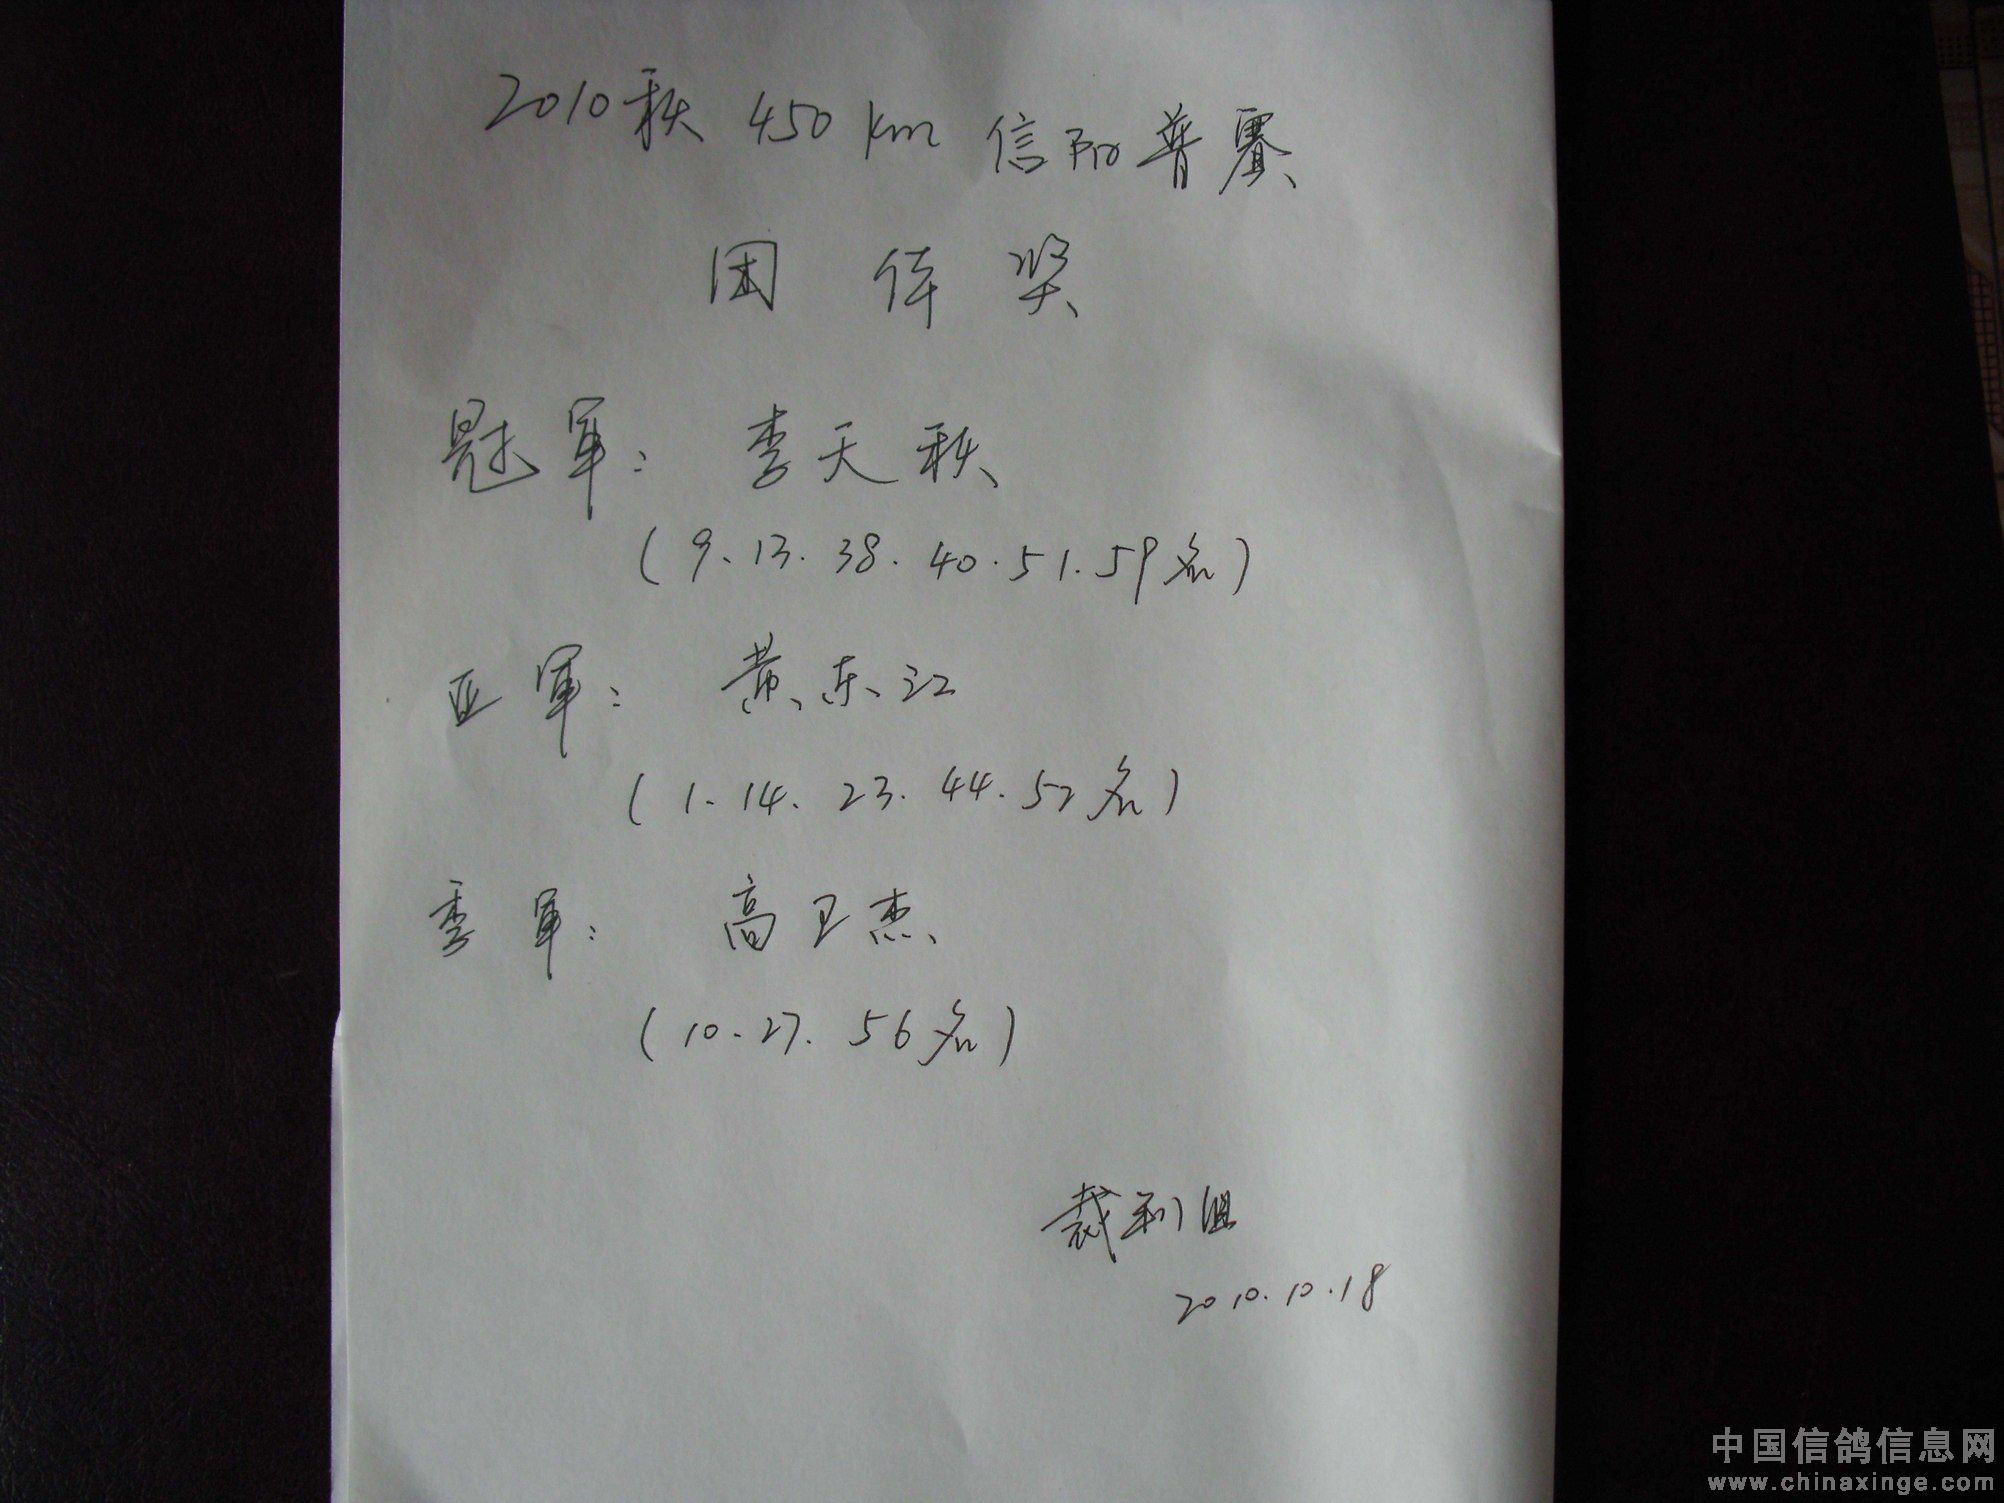 2010秋 450km 信阳普赛
团体奖
冠军: 李天秋
(9.13.38.40.51.59名)
亚军: 黄东江
(1.14.23.44.52名)
季军: 高卫杰
(10.27.56名)
裁判组
2010.10.18
中国信鸽信息网
www.chinaxinge.com